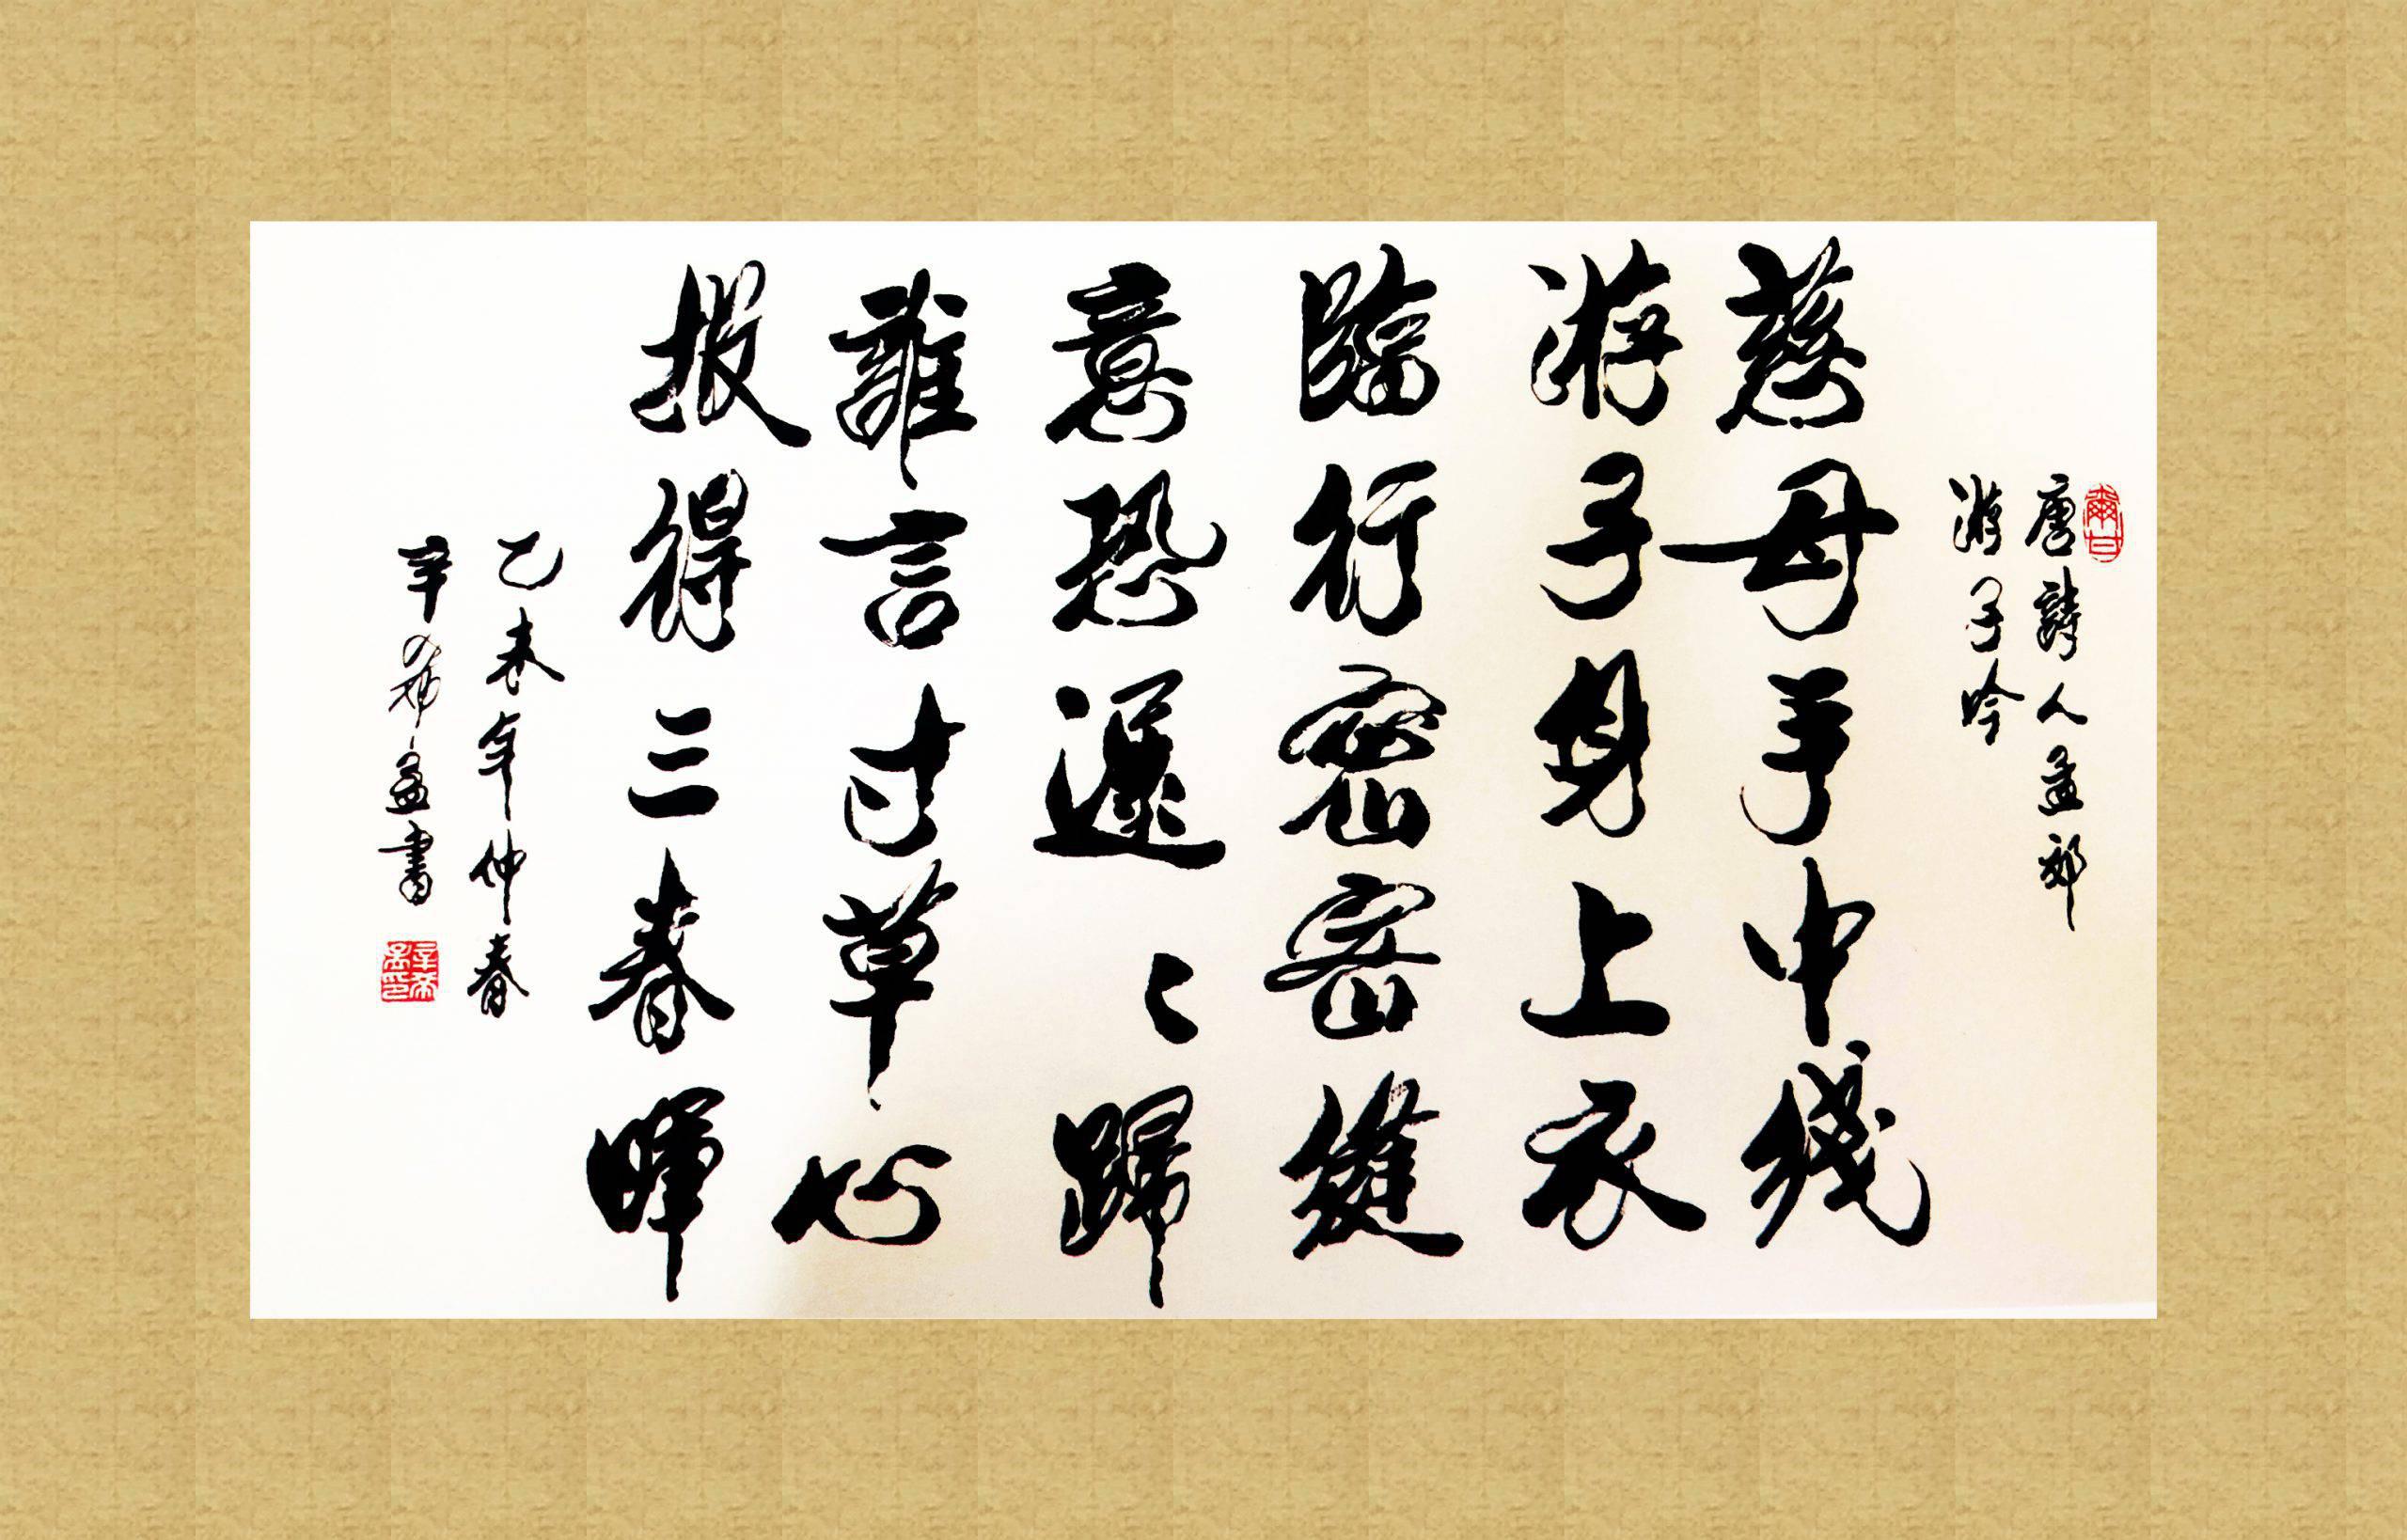 唐詩人孟郊
游子吟
慈母手中綫
游子身上衣
臨行密密縫
意恐遲〻歸
難言寸草心
報得三春暉
乙未年仲春
辛希孟書
辛希孟印